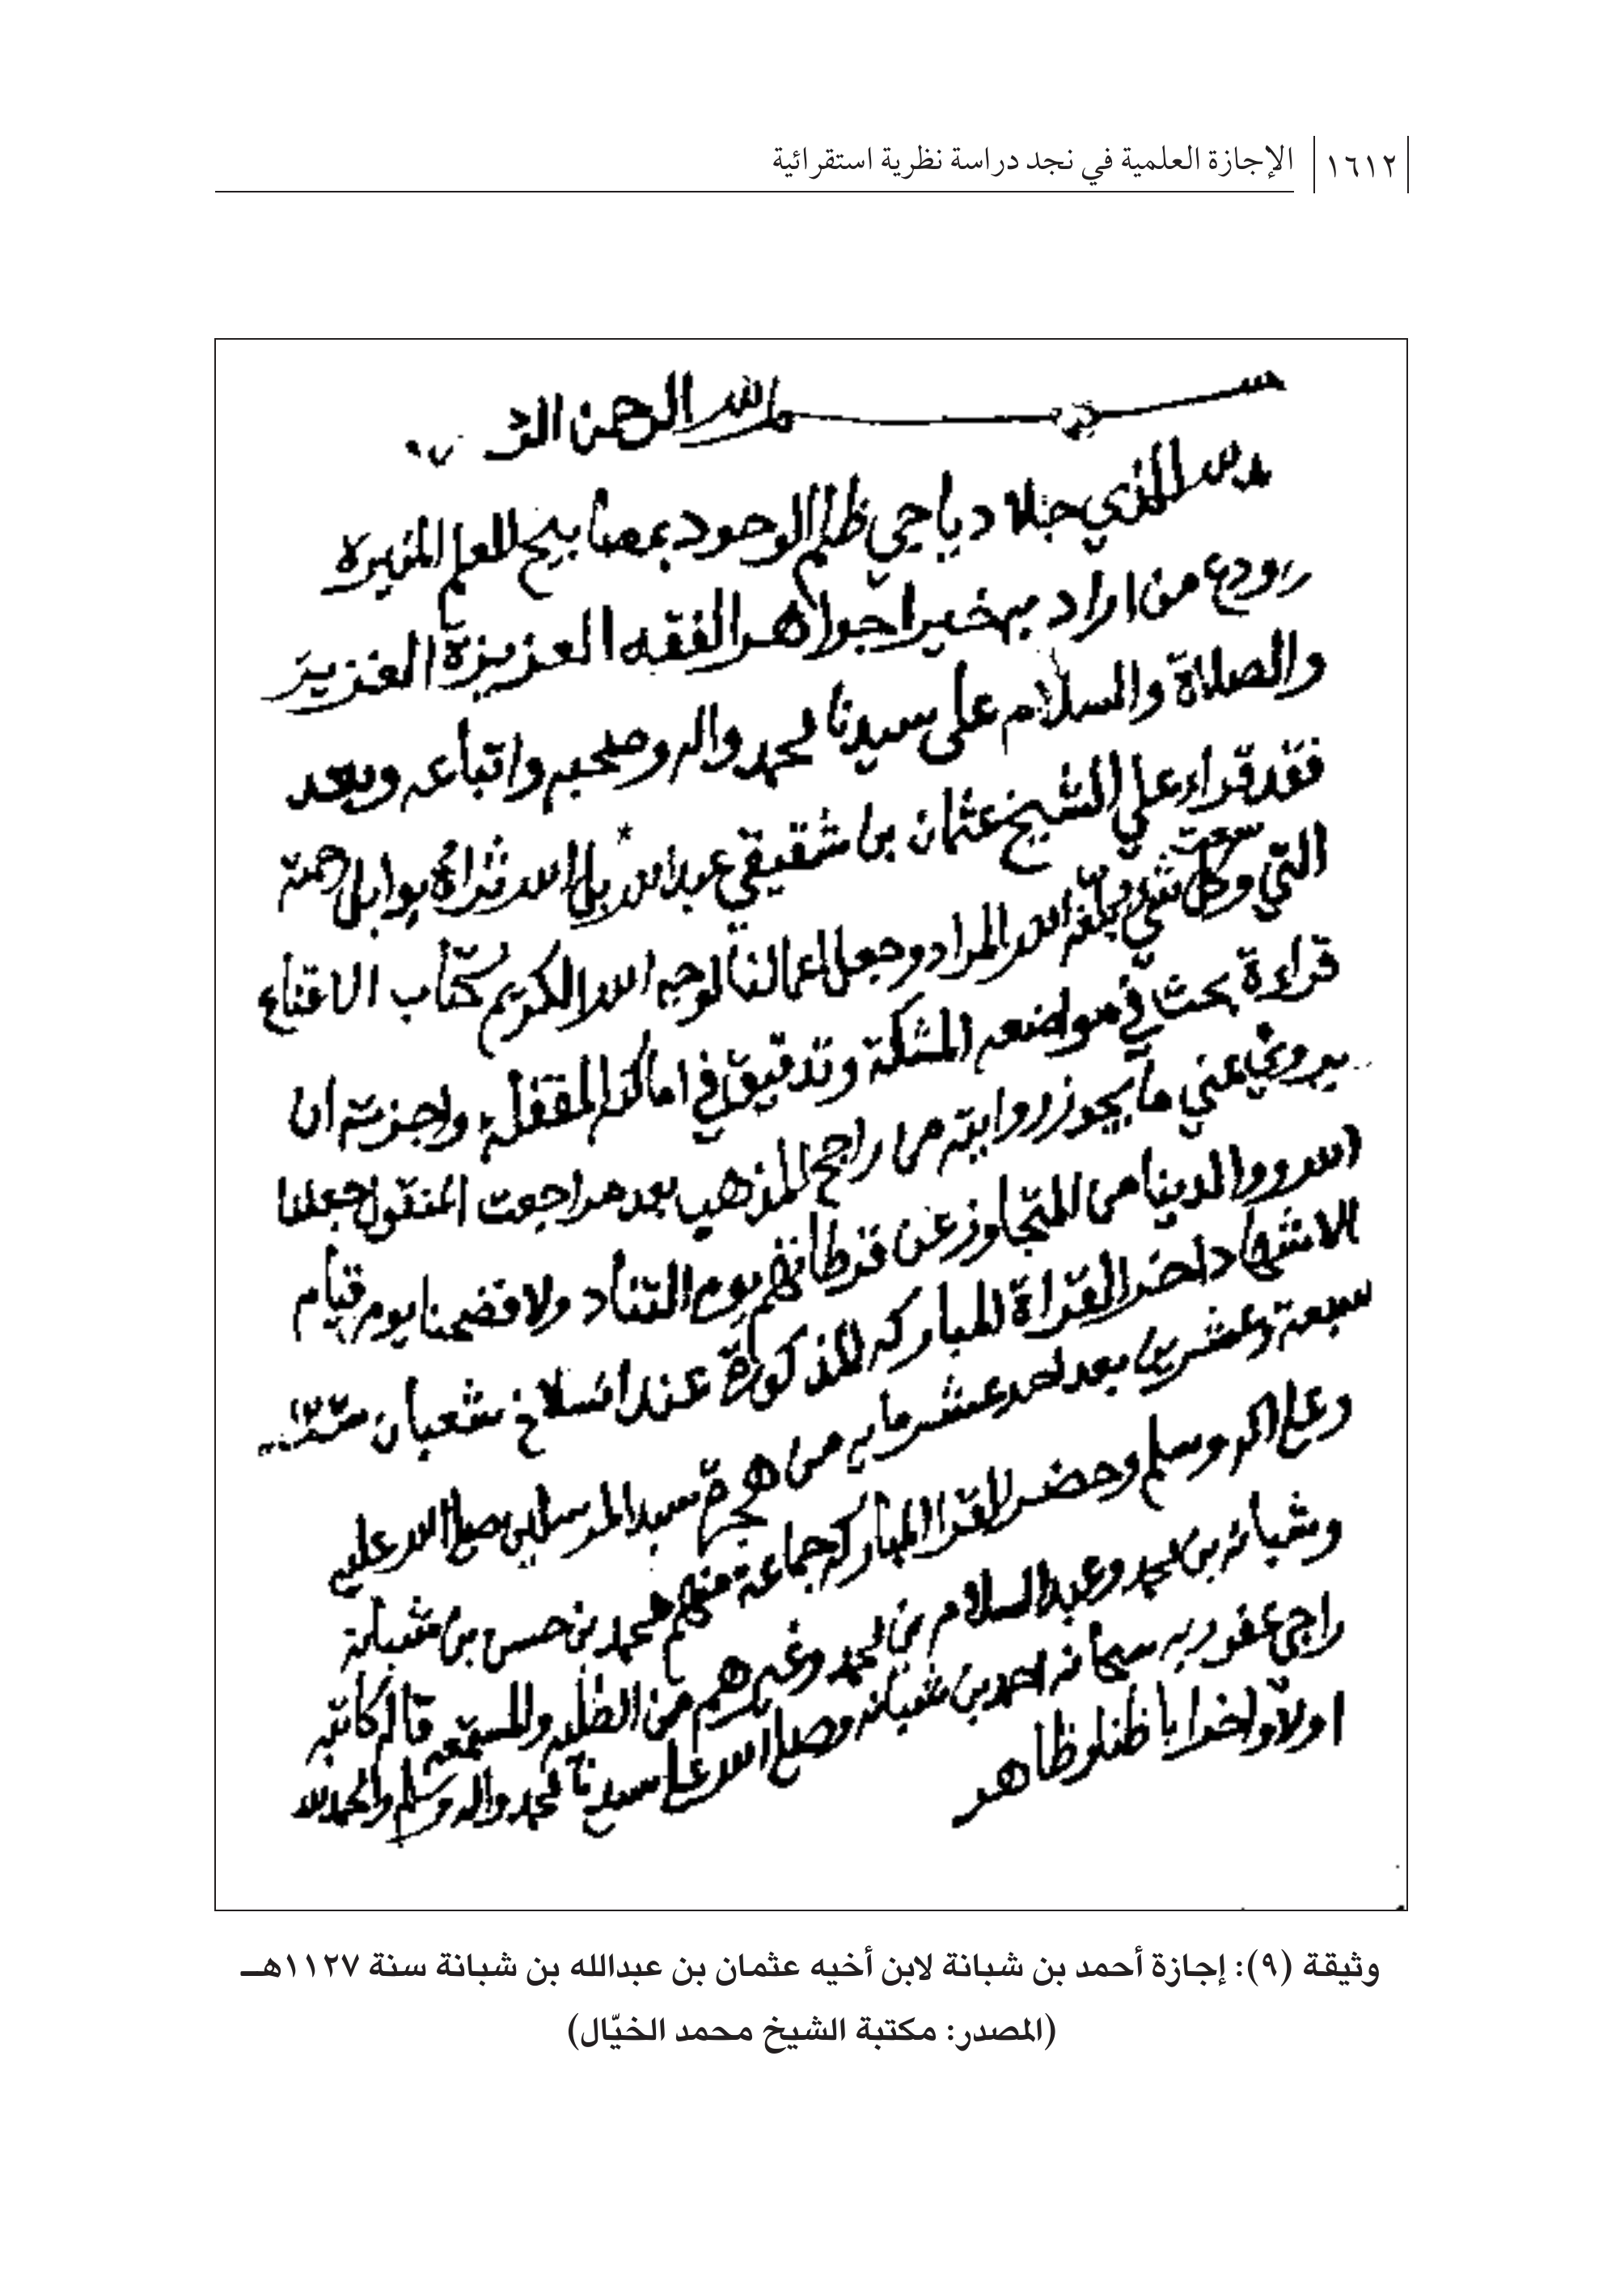 ١٦١٢ الإجازة العلمية في نجد دراسة نظرية استقرائية
بسم الله الرحمن
لله الذي جلا دياجي ظلم الوجود بمصابيح العلم المنيره
من اراد به خيرا جواهر الفقه العزيزة الغزيز
والصلاة والسلام على سيدنا محمد واله وصحبه واتباعه وبعد
فقد قراء علي الشيخ عثمان بن شقيقي عبد الله بل الله ثراه بوابل رحمته
التي وسعت كل شي بلغه الله المراد وجعل اعمالنا لوجه الله الكريم كتاب الاقناع
قراءة بحث في مواضعه المشكلة وتدقيق في اماكنه المقفلة واجزته ان
يروي عني ما يجوز روايته من راجح المذهب بعد مراجعت المنقول جعلنا
الله ووالدينا من المتجاوز عن فرطاتهم يوم التناد ولا فضحنا يوم قيام
الاشهاد القراة المباركه المذكورة عند انسلاخ شعبان
سبعة وعشرين بعد احد عشر مايه من هجرة سيد المرسلين صلى الله عليه
وعلى اله وسلم وحضر القرا المباركه جماعة منهم محمد بن حسن بن شبانة
وشبانه بن محمد وعبد السلام بن احمد وغيرهم من الطلبه والمستمعه قاله كاتبه
راجي عفو ربه سبحانه احمد بن شبانه وصلى الله على سيدنا محمد واله وسلم والحمد لله
اولا واخرا باطنا وظاهر
وثيقة (٩): إجازة أحمد بن شبانة لابن أخيه عثمان بن عبدالله بن شبانة سنة ١١٢٧هـ
(المصدر: مكتبة الشيخ محمد الخيّال)